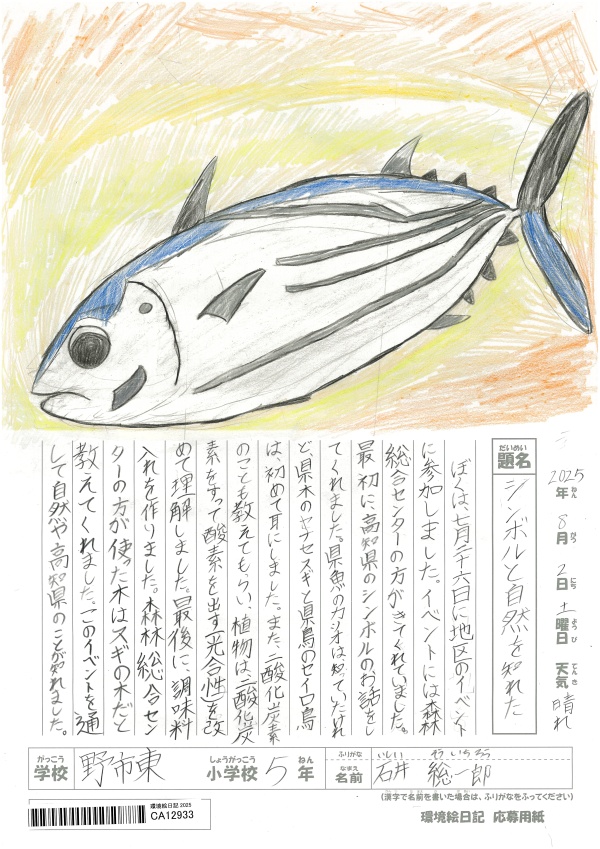 2025年 8月 2日 土曜日 天気 晴れ
ねん がつ にち ようび てんき
だいめい
題名 シンボルと自然を知れた
ぼくは、七月二十六日に地区のイベント
に参加しました。イベントには森林
総合センターの方がきてくれていました。
最初に、高知県のシンボルのお話をし
てくれました。県魚のカツオは知っていたけれ
ど、県木のヤナセスギと県鳥のセイロ鳥
は、初めて耳にしました。また、二酸化炭素
のことも教えてもらい、植物は二酸化炭
素をすって酸素を出す「光合性」を改
めて理解しました。最後に、調味料
入れを作りました。森林総合セン
ターの方が使った木はスギの木だと
教えてくれました。このイベントを通
して自然や高知県のことが知れました。
がっこう しょうがっこう ねん
学校 野市東 小学校 5年
ふりがな いしい そういちろう
なまえ
名前 石井 総一郎
(漢字で名前を書いた場合は、ふりがなをふってください)
環境絵日記 2025
CA12933
環境絵日記 応募用紙